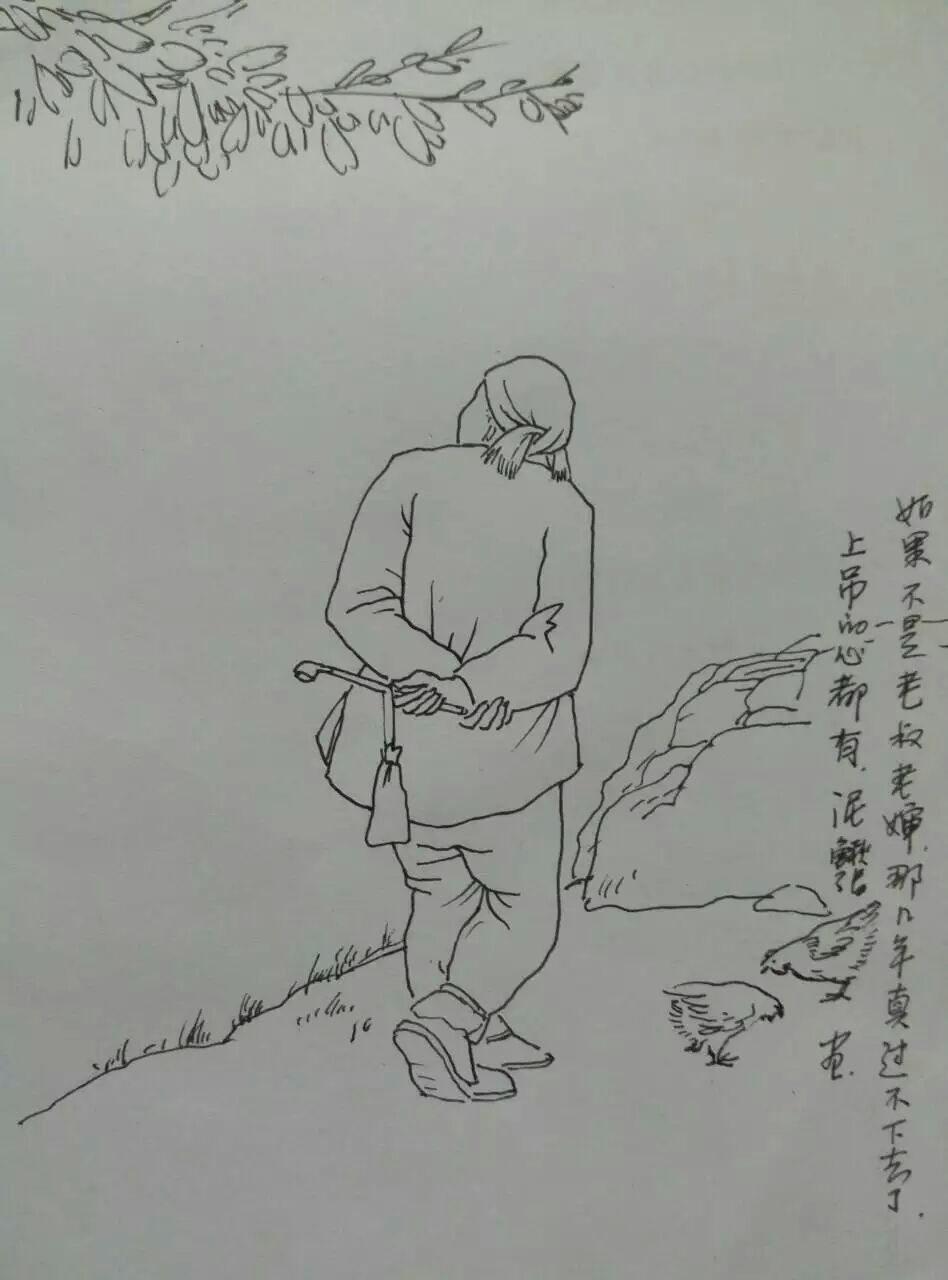 如果不是老叔老婶.那几年真过不下去了.
上吊的心都有.泥鳅 画.